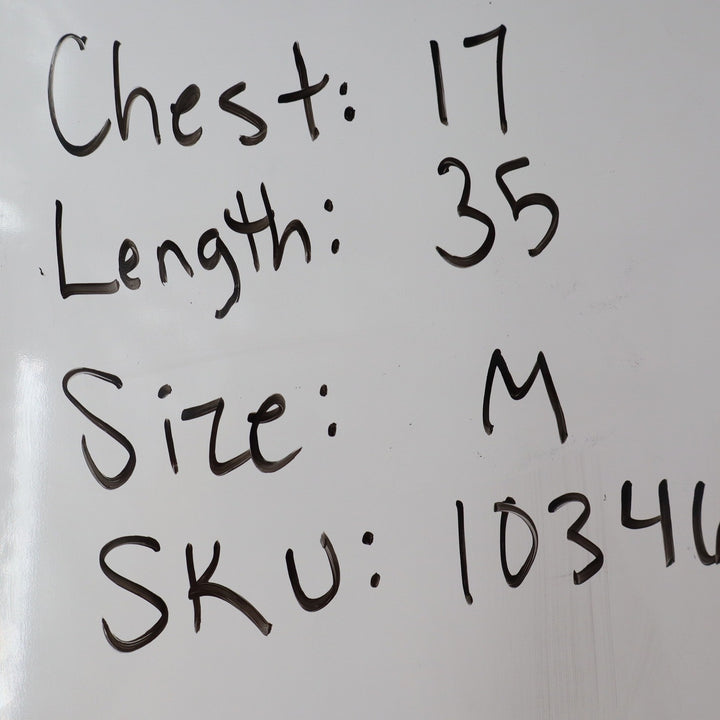 Chest: 17
Length: 35
Size: M
SKU: 1034